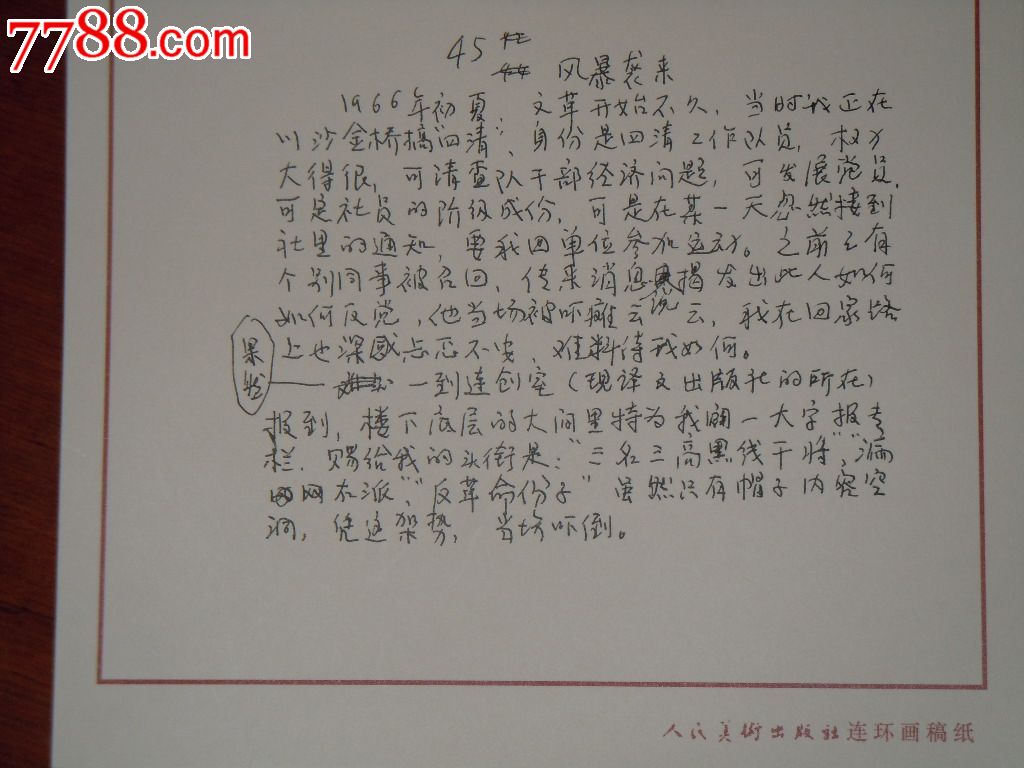 7788.com
45 狂
风暴袭来
1966年初夏,文革开始不久,当时我正在
川沙金桥搞"四清",身份是四清工作队员,权力
大得很,可清查队干部经济问题,可发展党员,
可定社员的阶级成份,可是在某一天忽然接到
社里的通知,要我回单位参加运动。之前已有
个别同事被召回,传来消息说揭发出此人如何
如何反党,他当场被吓瘫云云,我在回家路
上也深感忐忑不安,难料待我如何。
果然一到连创室(现译文出版社的所在)
报到,楼下底层的大间里特为我开一大字报专
栏.赐给我的头衔是:"三名三高黑线干将","漏
网右派","反革命份子"虽然只有帽子内容空
洞,凭这架势,当场吓倒。
人民美術出版社连环画稿纸